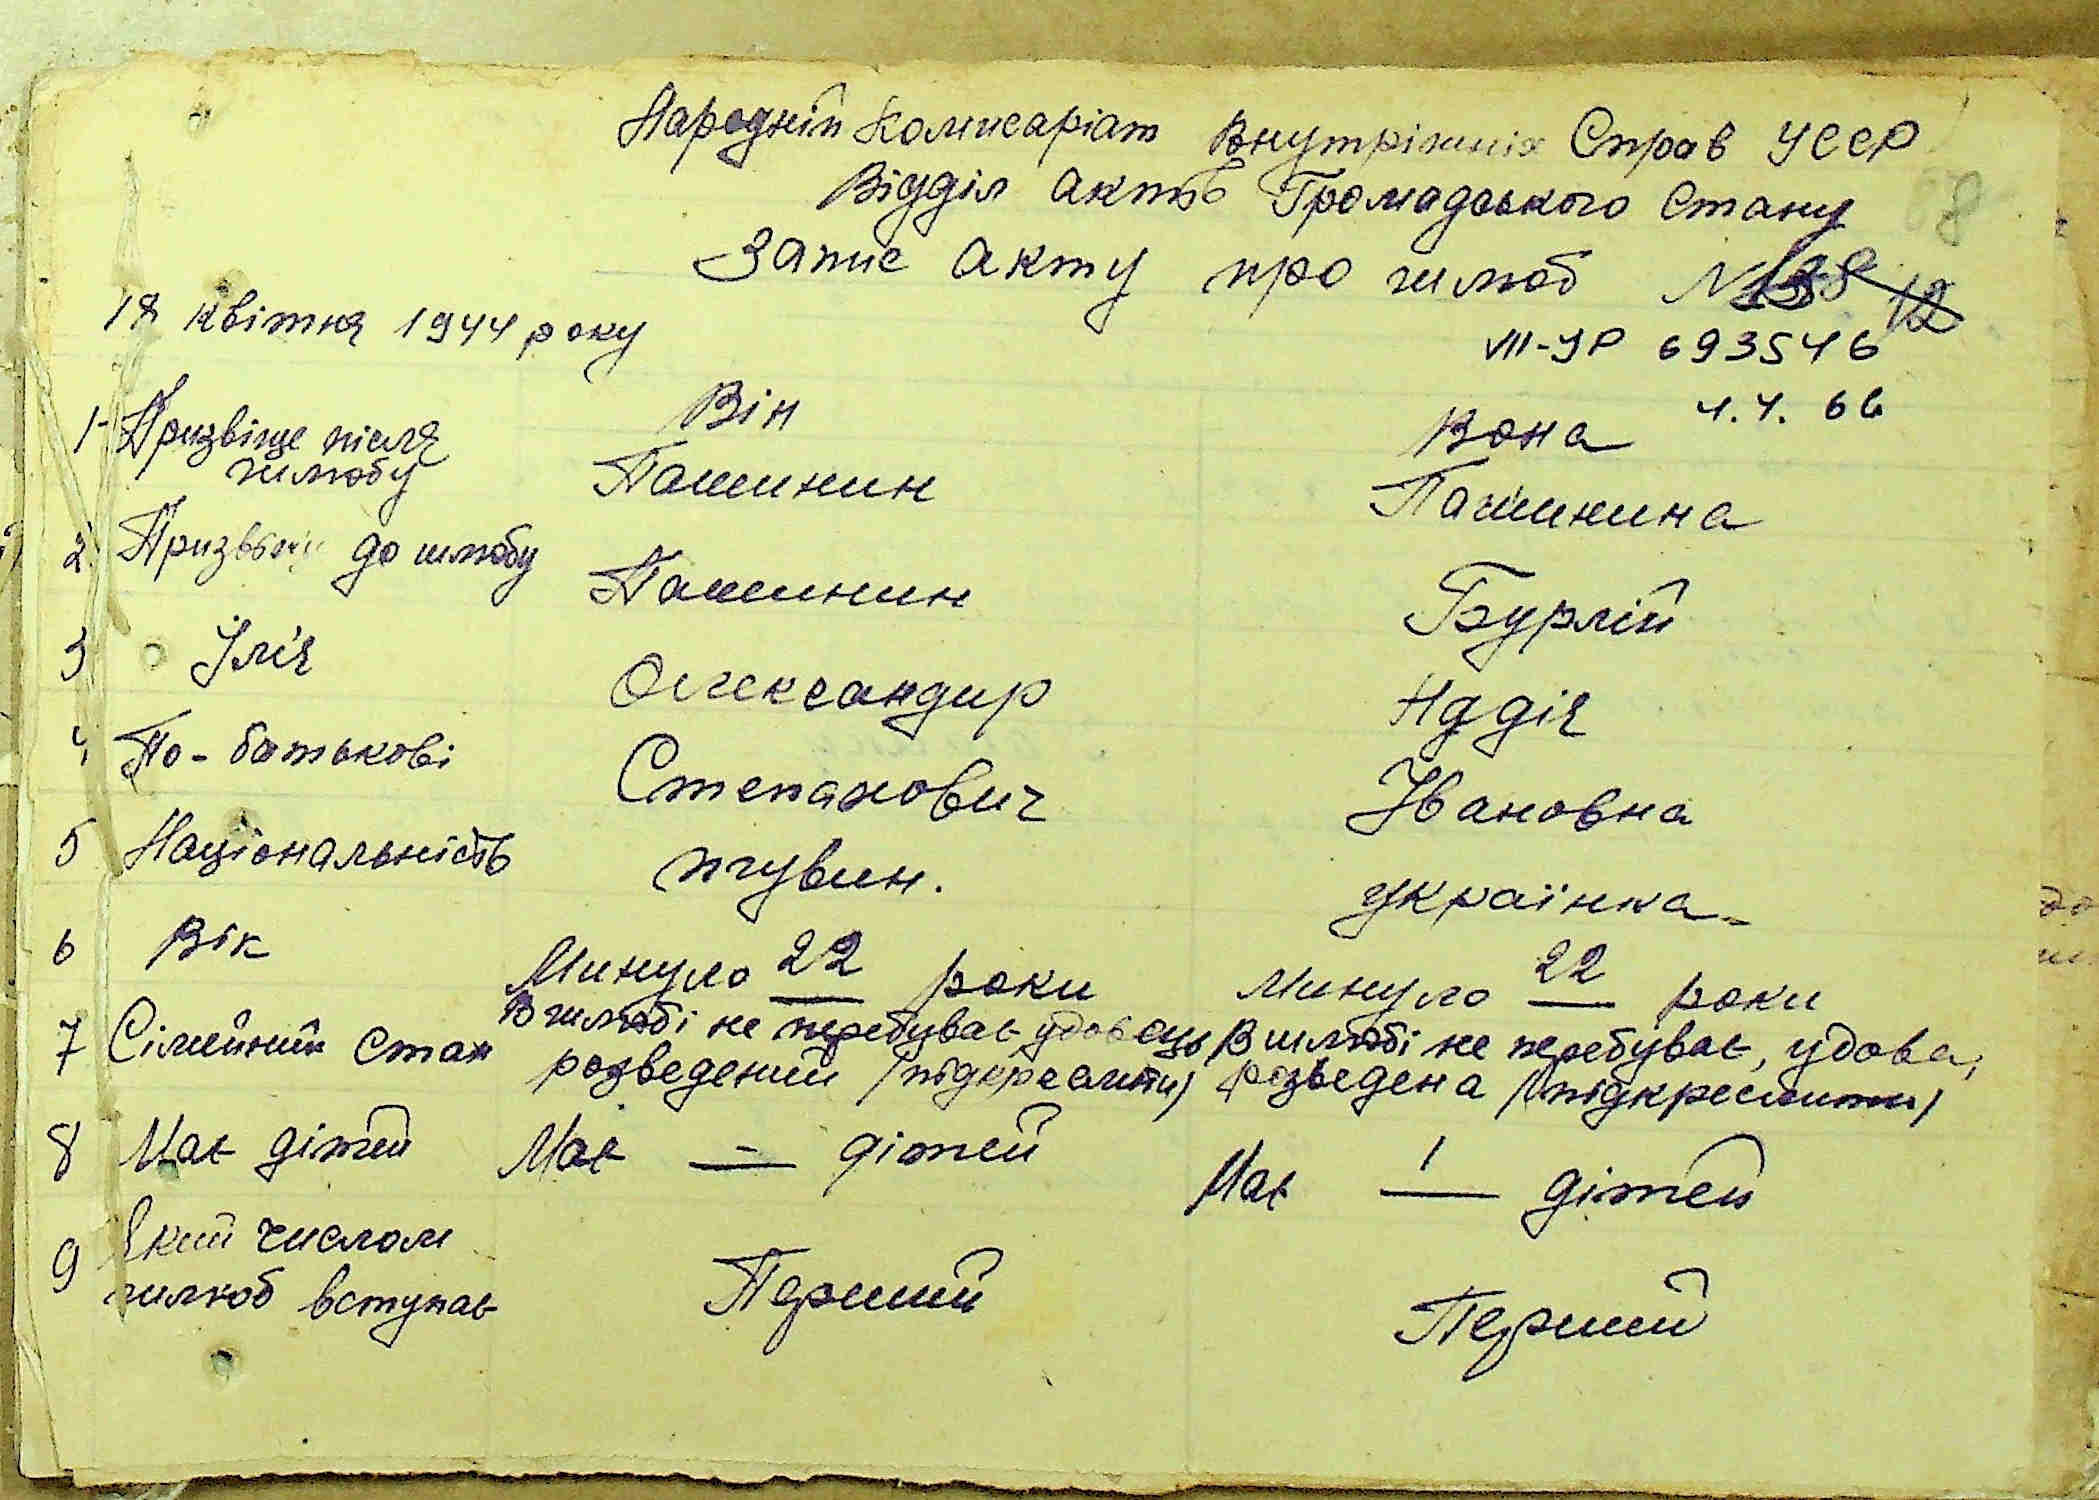 Народній Комисаріат Внутрішніх Справ УССР
Відділ актів Громадського Стану
Запис акту про шлюб № 138 12
18 квітня 1944 року
VII-УР 693546
4.4. 66
Він Вона
1- Призвіще після шлюбу Пашинин Пашинина
2. Призвіще до шлюбу Пашинин Бурлій
3 Ім'я Олександир Надія
4, По-батькові Степанович Івановна
5 Національність українка
6 Вік Минуло 22 роки Минуло 22 роки
7 Сімейний стан В шлюбі не перебуває удовець В шлюбі не перебуває, удова,
розведений /підкреслити/ розведена /підкреслити/
8 Має дітей Має – дітей Має 1 дітей
9 Який числом
шлюб вступає Перший Перший